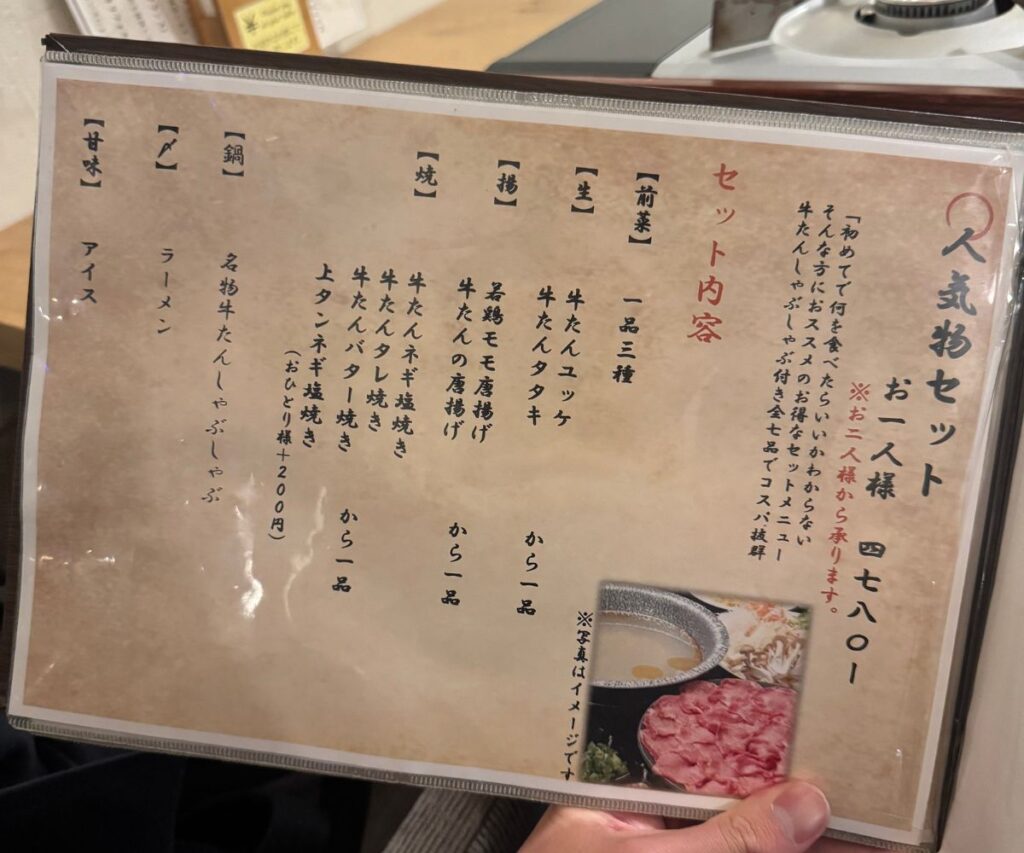 人気物セット
お一人様 四七八〇ー
※お二人様から承ります。
「初めてで何を食べたらいいかわからない
そんな方におススメのお得なセットメニュー
牛たんしゃぶしゃぶ付き全七品でコスパ抜群
セット内容
【前菜】 一品三種
【生】 牛たんユッケ
牛たんタタキ から一品
【揚】 若鶏モモ唐揚げ
牛たんの唐揚げ から一品
【焼】 牛たんネギ塩焼き
牛たんタレ焼き
牛たんバター焼き から一品
上タンネギ塩焼き
(おひとり様+200円)
【鍋】 名物牛たんしゃぶしゃぶ
【〆】 ラーメン
【甘味】 アイス
※写真はイメージです